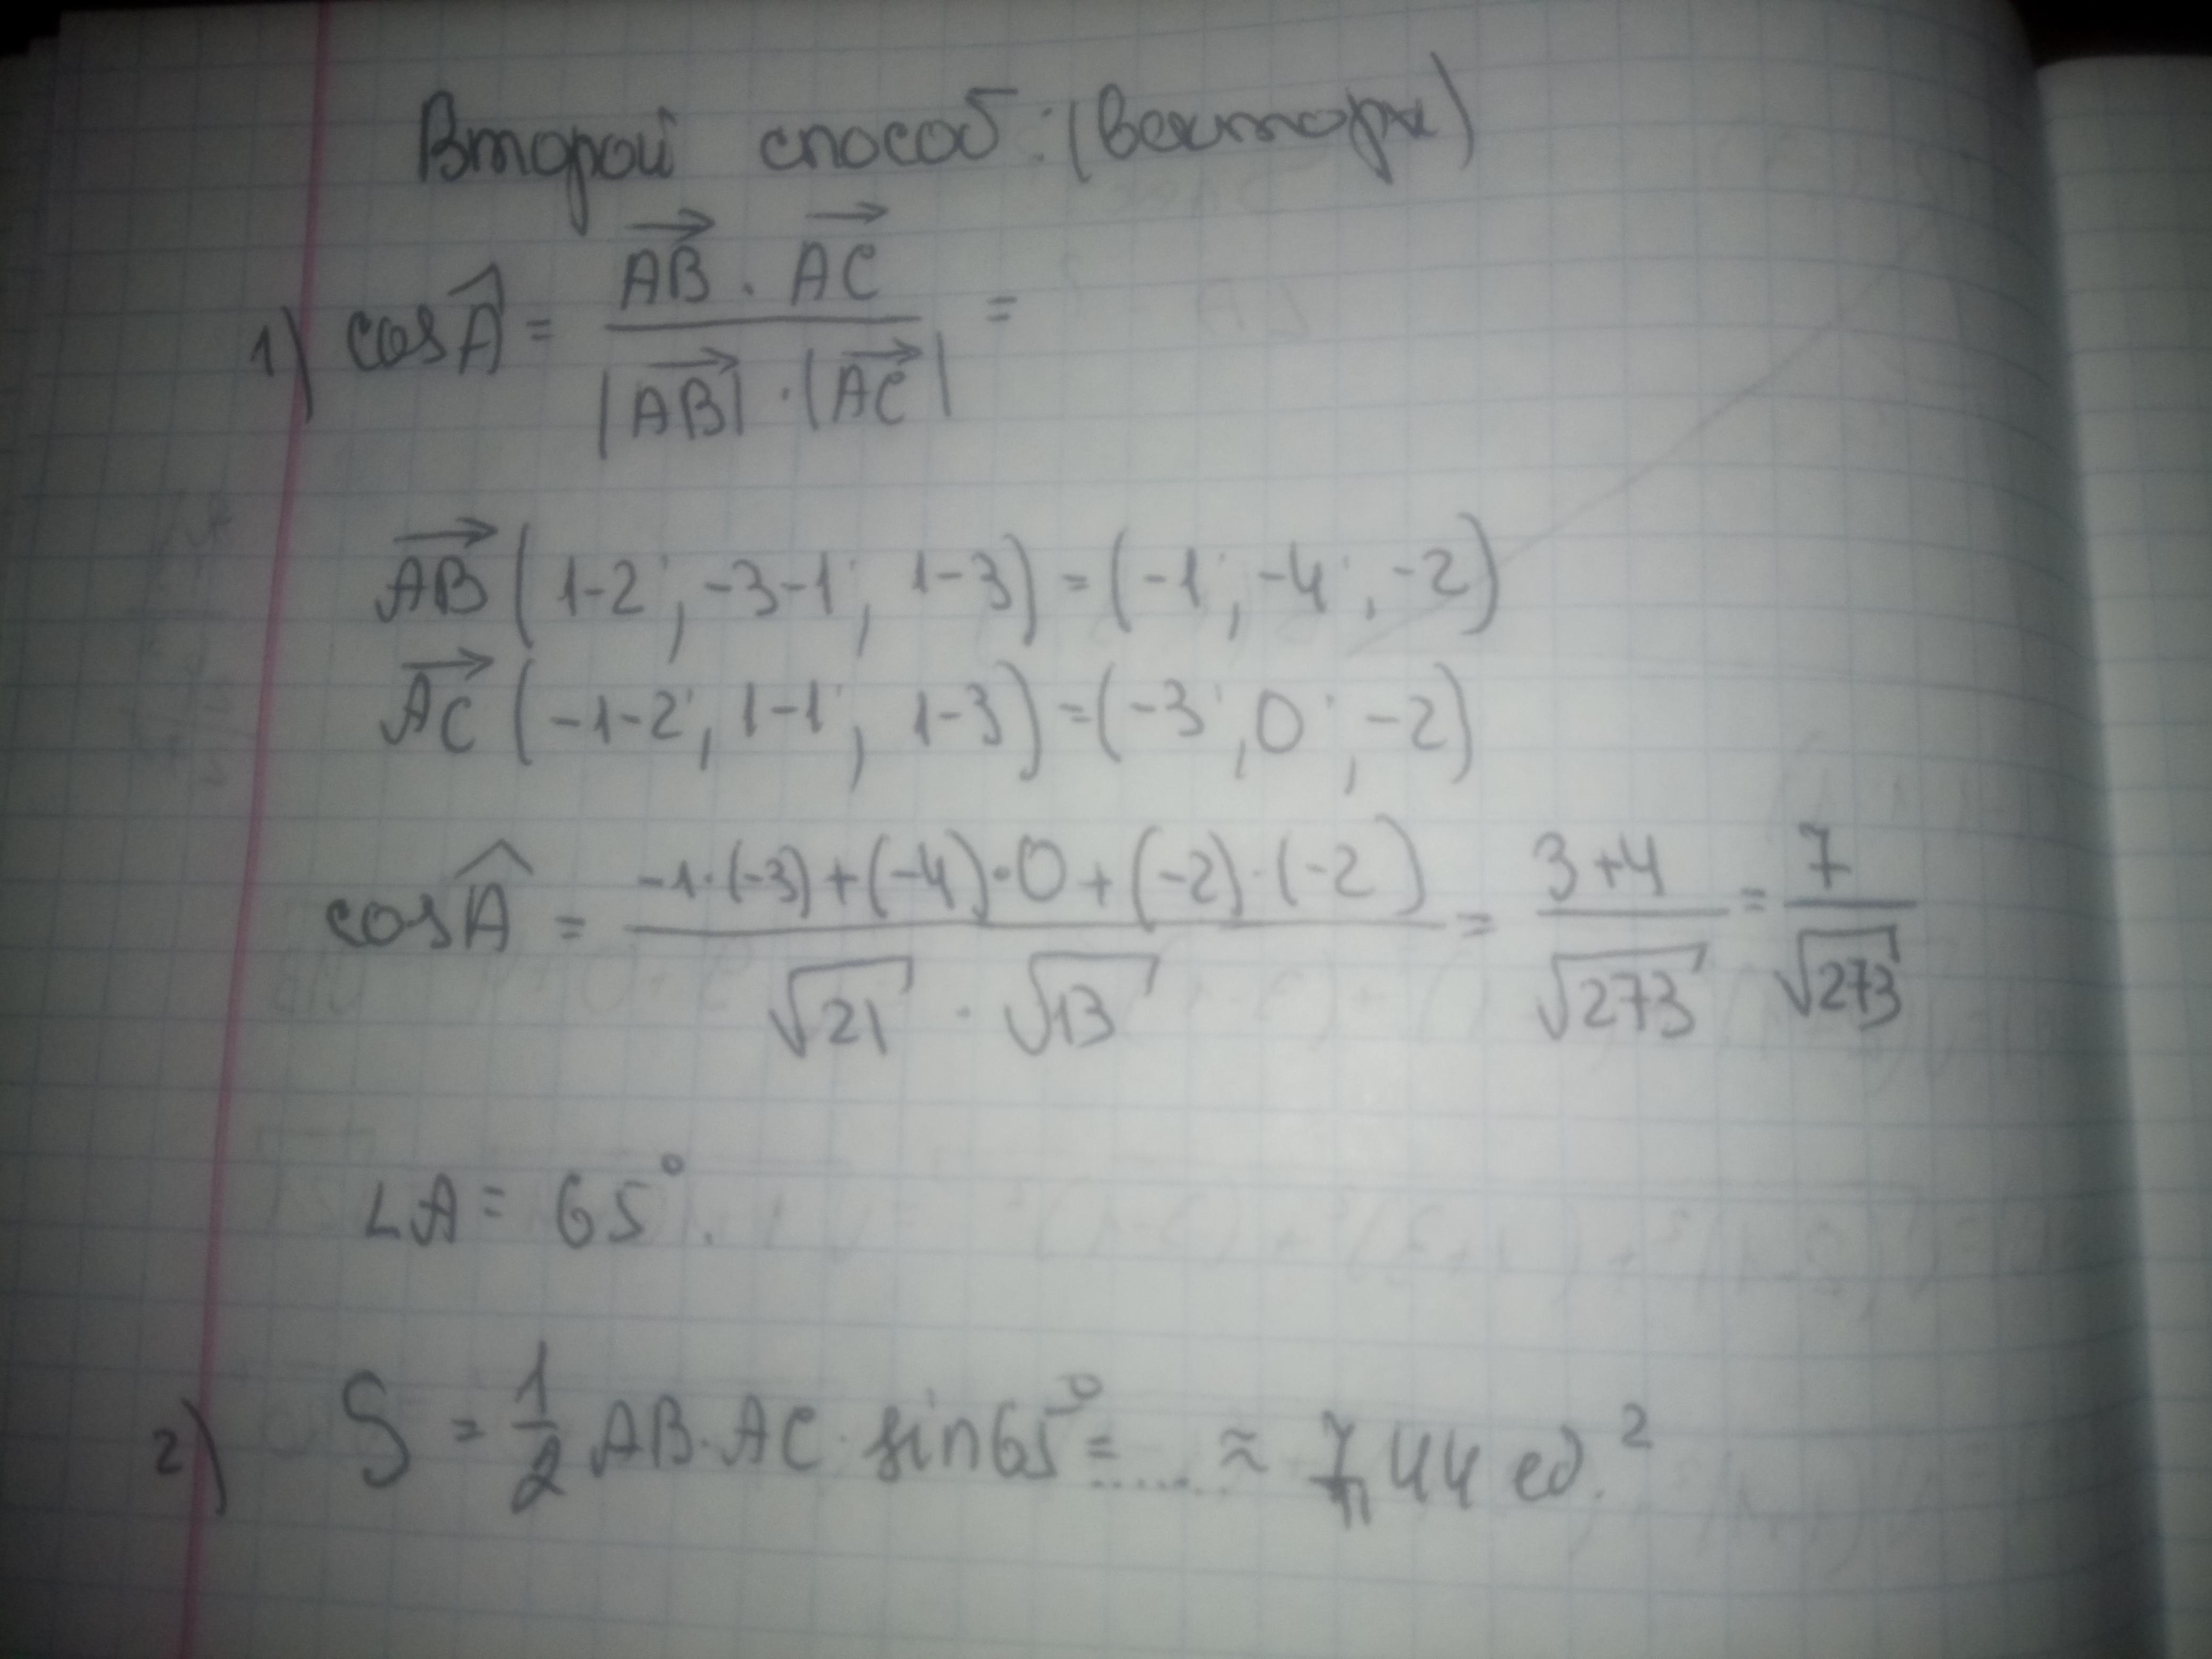 Второй способ: (вектора)
1) cos Â = (AB · AC) / (|AB| · |AC|) =
AB (1-2; -3-1; 1-3) = (-1; -4; -2)
AC (-1-2; 1-1; 1-3) = (-3; 0; -2)
cos Â = (-1·(-3)+(-4)·0+(-2)·(-2)) / (√21 · √13) = (3+4) / √273 = 7 / √273
∠A = 65°.
2) S = 1/2 AB·AC · sin65° = ..... ≈ 7,44 ед.²